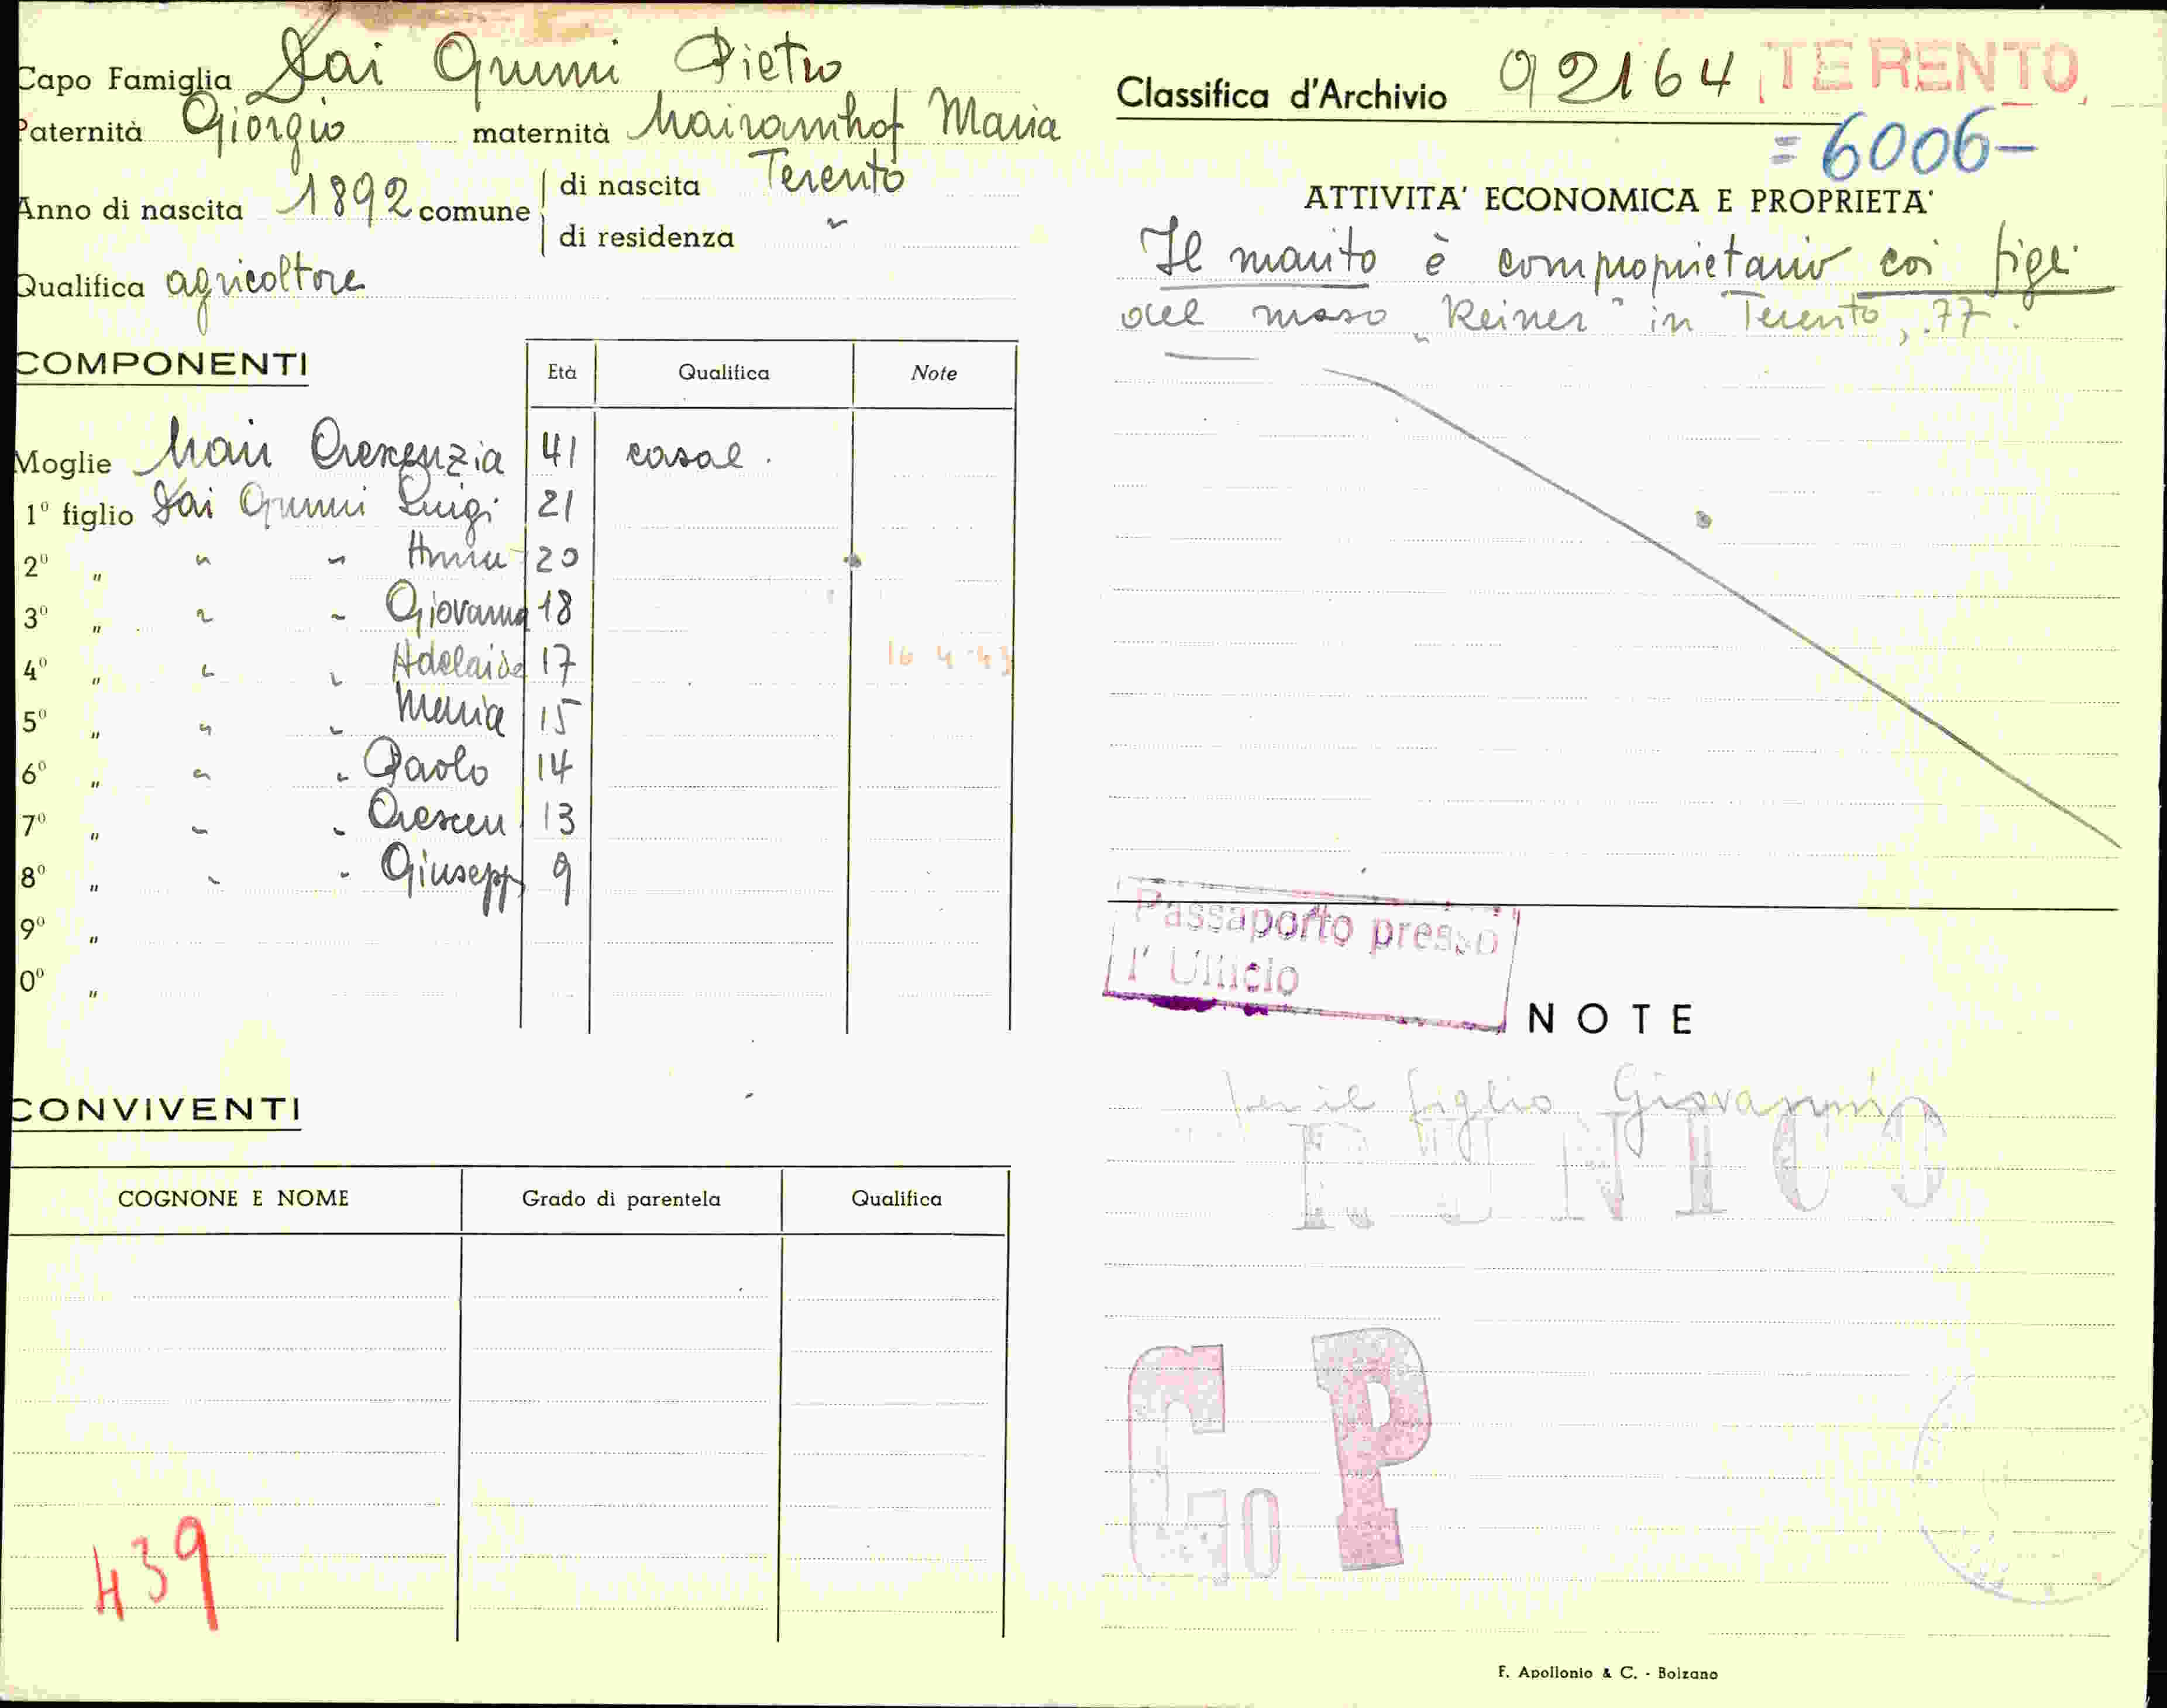 Capo Famiglia Dai Grumi Pietro
Paternità Giorgio maternità Mairamhof Maria
Anno di nascita 1892 comune di nascita Terento
di residenza "
Qualifica agricoltore
COMPONENTI Età Qualifica Note
Moglie Mair Crescenzia 41 casal.
1º figlio Dai Grumi Luigi 21
2º " " " Anna 20
3º " " " Giovanna 18
4º " " " Adelaide 17 16 4 43
5º " " " Maria 15
6º " " " Paolo 14
7º " " " Crescen 13
8º " " " Giusepp 9
9º "
0º "
CONVIVENTI
COGNONE E NOME Grado di parentela Qualifica
439
Classifica d'Archivio 92164 TERENTO
=6006-
ATTIVITA' ECONOMICA E PROPRIETA'
Il marito è comproprietario coi figli
del maso „Reiner" in Terento, 77.
Passaporto presso
l' Ufficio
NOTE
per il figlio Giovanni
BUNICO
G P
F. Apollonio & C. - Bolzano